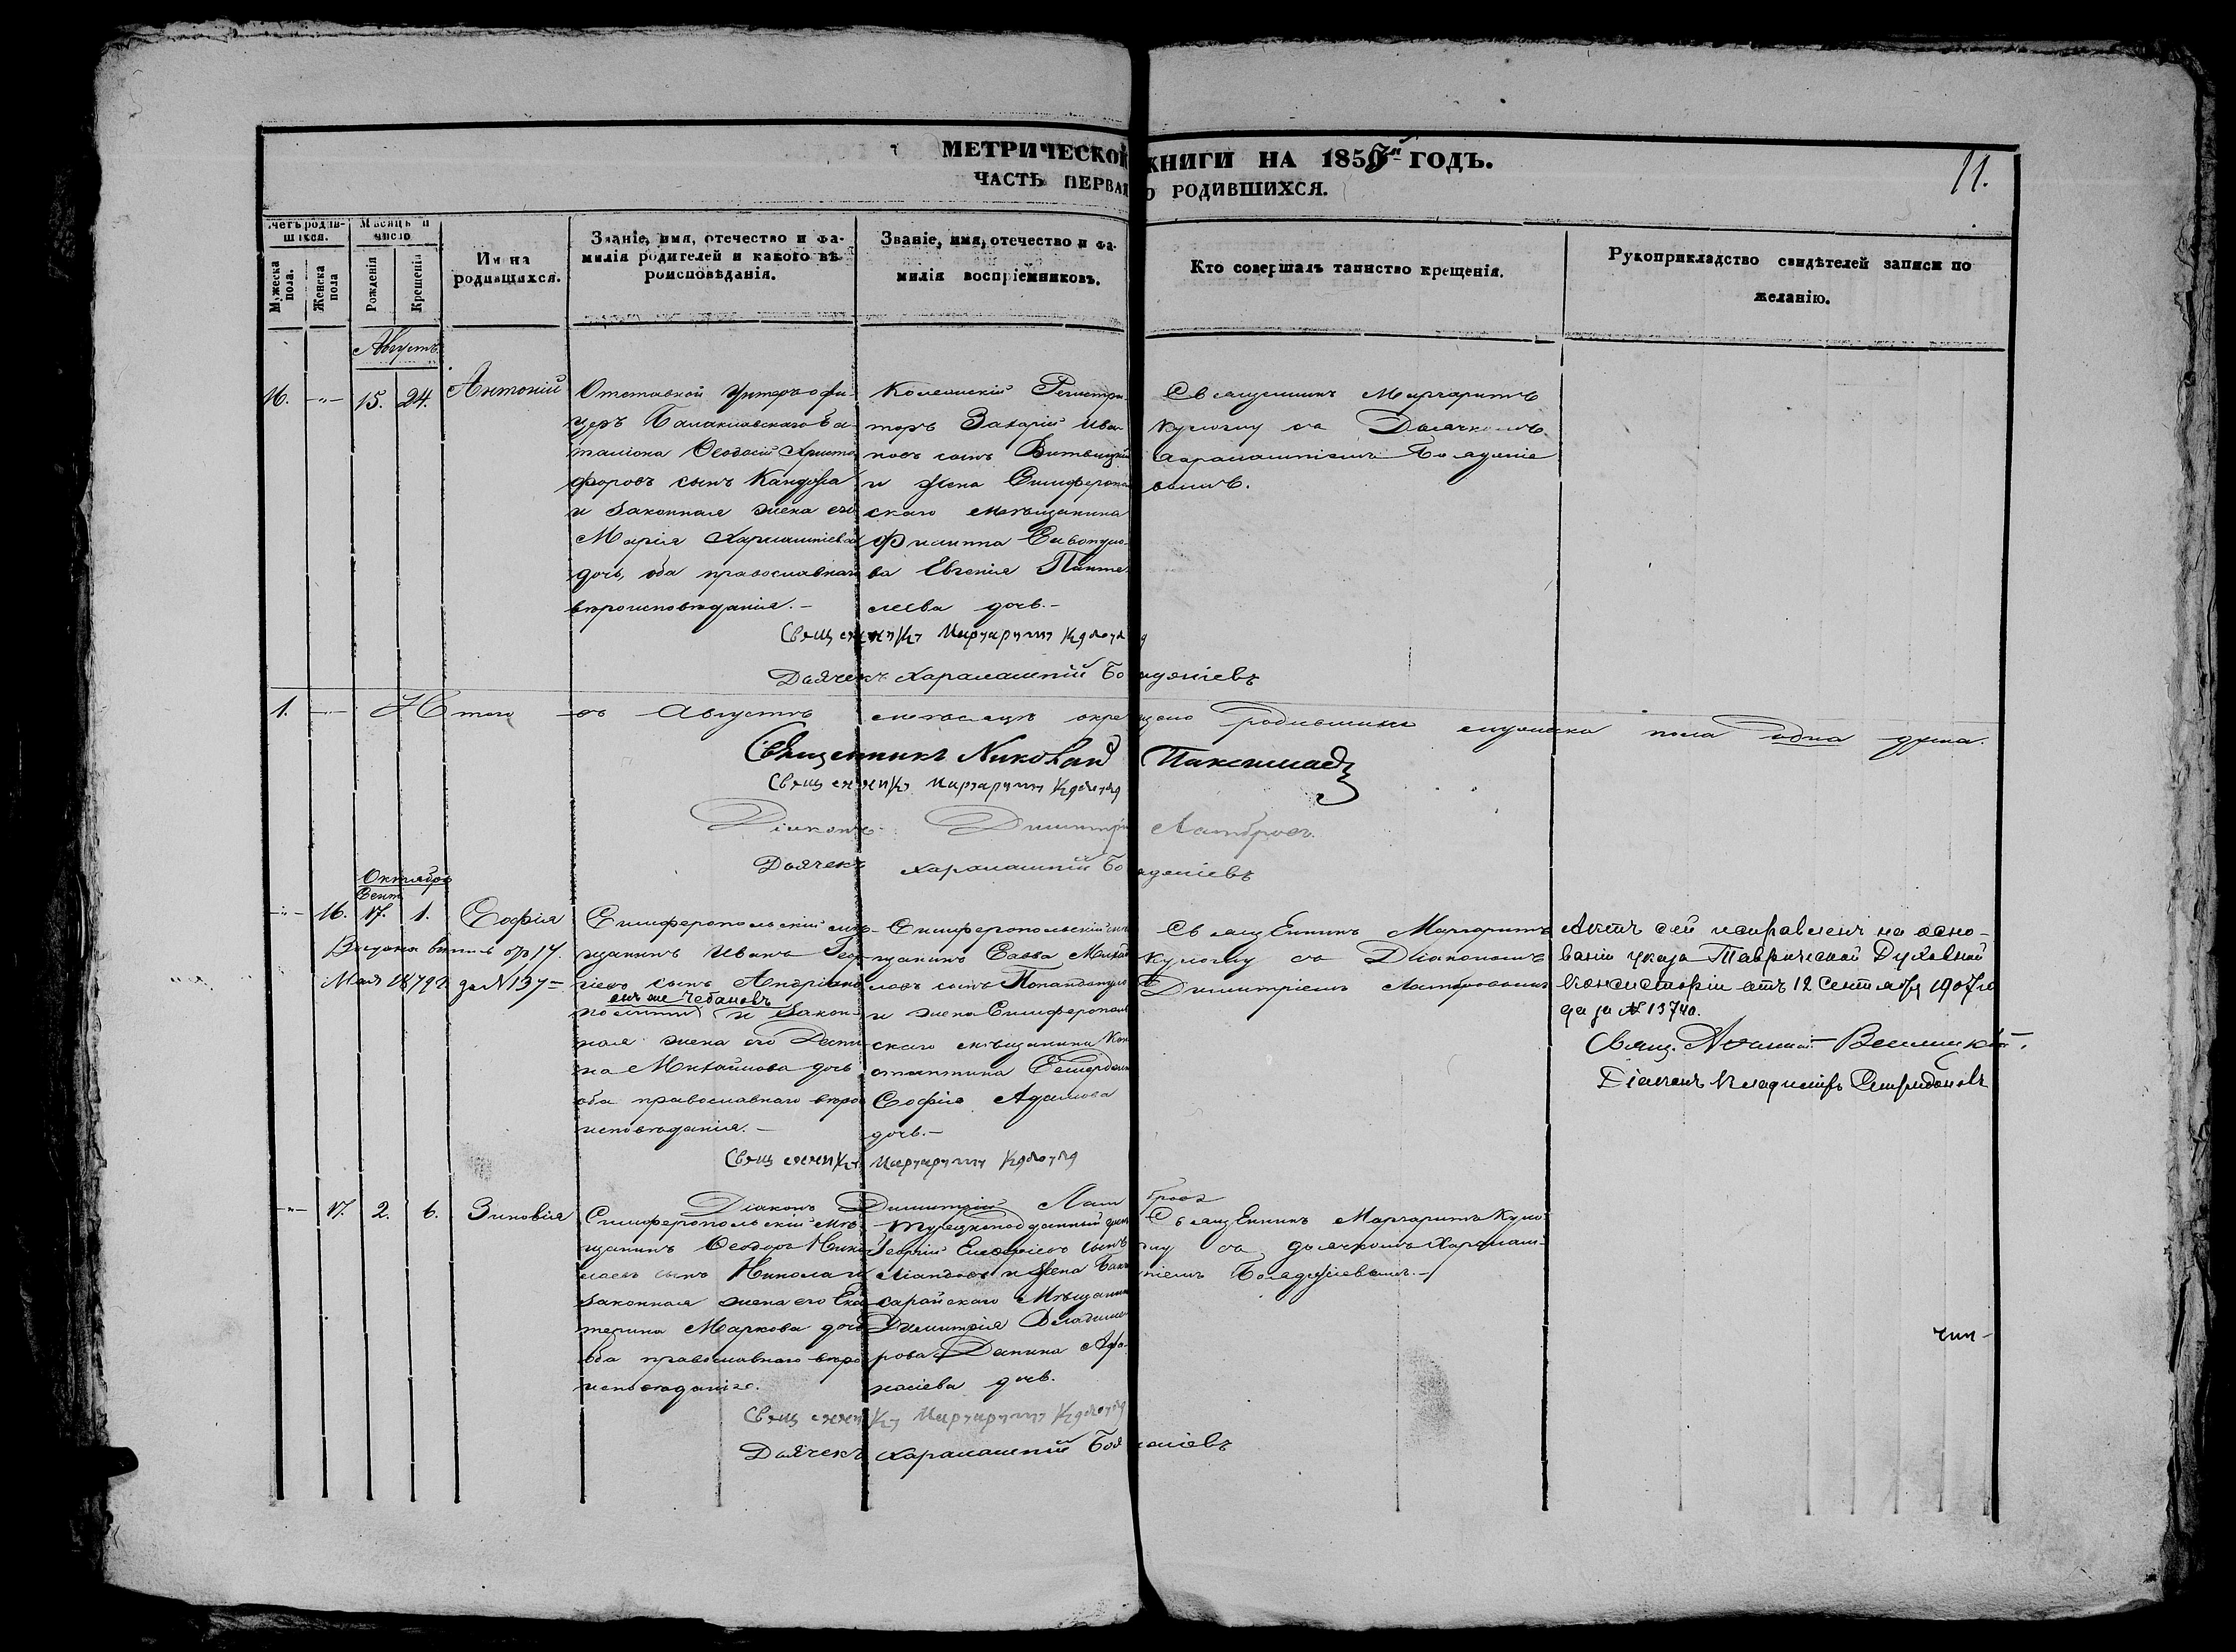 МЕТРИЧЕСКОЙ КНИГИ НА 1856й ГОДЪ.
11.
ЧАСТЬ ПЕРВАЯ О РОДИВШИХСЯ.
Счетъ родив-
шихся.
Мужеска пола.
Женска пола
Мѣсяцъ и
число
Рожденія
Крещенія
Имена
родившихся.
Званіе, имя, отечество и фа-
милія родителей и какого вѣ-
роисповѣданія.
Званіе, имя, отечество и фа-
милія воспріемниковъ.
Кто совершалъ таинство крещенія.
Рукоприкладство свидѣтелей записи по
желанію.
Августъ
16. -"- 15. 24. Антоній
Отставной Унтеръ офи-
церъ Балаклавскаго Ба-
таліона Ѳеодосій Христо
форовъ сынъ
и законная жена его
Марія Харлампіева
дочь, оба православнаго
вѣроисповѣданія.-
Колежскій Регистра
торъ Захарій Ива
новъ сынъ
и жена Симферополь
скаго мѣщанина
Филиппа
ва Евгенія Панте
леева дочь.-
Священникъ Маргаритъ
Кулоглу съ Дьячкомъ
Харлампіемъ Бояджіе
вымъ.
Священникъ Маргаритъ Кулоглу
Дьячекъ Харлампій Бояджіевъ
1. Итого въ Августѣ мѣсяцѣ окрещено родившихся мужеска пола одна душа.
Священникъ Николай
Священникъ Маргаритъ Кулоглу
Діаконъ Димитрій
Дьячекъ Харлампій Бояджіевъ
Октябрь
Сент.
-"- 16. 17. 1. Софія
Выдана выпись 14.
Мая 1879 г. за N 137-
Симферопольскій мѣ-
щанинъ Иванъ Геор
гіевъ сынъ Андріано
онъ же Чебановъ
и закон-
ная жена его Деспи
на Михайлова дочь
оба православнаго вѣро
исповѣданія.-
Симферопольскій мѣ
щанинъ Савва Михай
ловъ сынъ
и жена Симферополь
скаго мѣщанина Кон
стантина
Софія Адамова
дочь.-
Священникъ Маргаритъ
Кулоглу съ Діакономъ
Димитріемъ
Актъ сей исправленъ на осно-
ваніи указа Таврической Духовной
Консисторіи отъ 12 Сентября 1907 го
да за № 13740.
Свящ.
Діаконъ Владиміръ Спиридоновъ
Священникъ Маргаритъ Кулоглу
Діаконъ Димитрій
-"- 17. 2. 6. Зиновія
Симферопольскій мѣ-
щанинъ Ѳеодоръ Нико
лаевъ сынъ Никола и
законная жена его Ека
терина Маркова дочь
оба православнаго вѣро
исповѣданія.
Турецкоподданный грек
Георгій сынъ
и жена Бахчи
сарайскаго Мѣщанина
Димитрія Владими
рова Деспина Афа-
насіева дочь.
Священникъ Маргаритъ Куло
глу съ дьячкомъ Харлам-
піемъ Бояджіевымъ.-
Священникъ Маргаритъ Кулоглу
Дьячекъ Харлампій Бояджіевъ